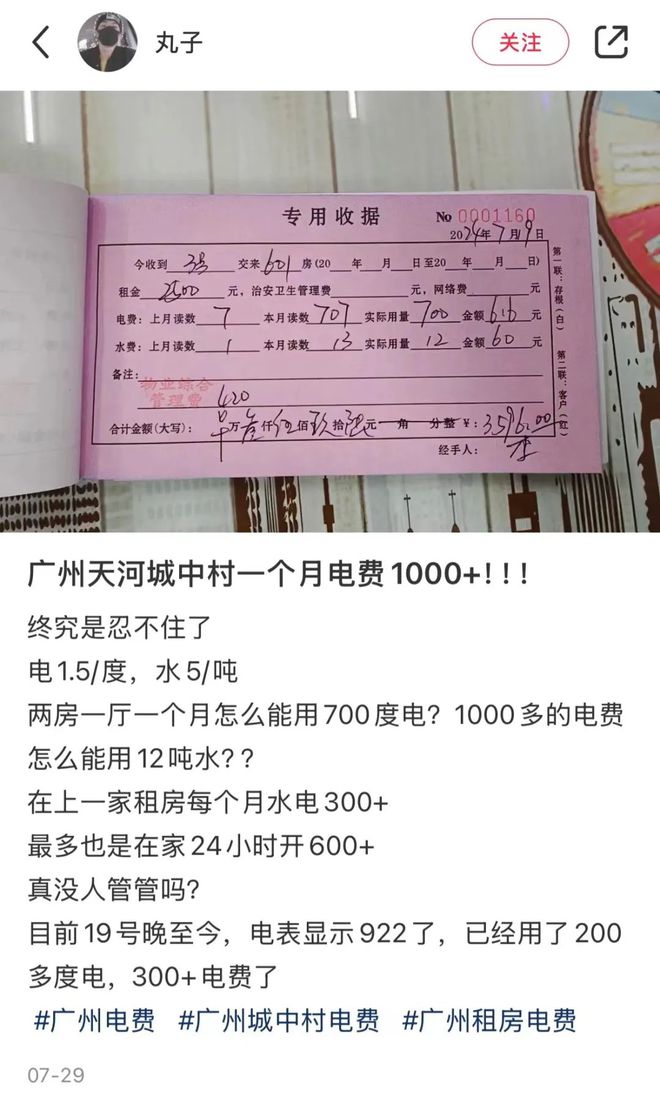 丸子
关注
专用收据
No 0001160
2024年7月19日
今收到 交来601房(20 年 月 日至20 年 月 日)
租金2500元，治安卫生管理费 元，网络费 元
电费：上月读数 7 本月读数 707 实际用量 700 金额 616 元
水费：上月读数 1 本月读数 13 实际用量 12 金额 60 元
备注：
物业综合
管理费 420
合计金额(大写)： 万 仟 佰玖拾 元 角 分整 ¥：3596.00
经手人：李
第一联：存根(白)
第二联：客户(红)
广州天河城中村一个月电费1000+!!!
终究是忍不住了
电1.5/度，水5/吨
两房一厅一个月怎么能用700度电？1000多的电费
怎么能用12吨水？？
在上一家租房每个月水电300+
最多也是在家24小时开600+
真没人管管吗?
目前19号晚至今，电表显示922了，已经用了200
多度电，300+电费了
#广州电费 #广州城中村电费 #广州租房电费
07-29